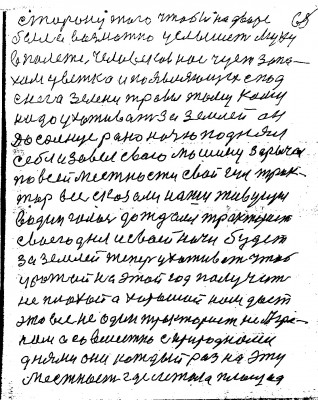 сторону того чтобы на дворе 65
было возможно услышет муху
в полете, человеков нос чует запа-
хом цветка и появляющих с под
снега зелени травы тому кому
надо ухотиват за землей он
до солнце рано ночю поднял
себя и завел свою машину зарычал
по всей местности свой гул трак-
тар все сказали нажи живущи
водин голос дождался тракторист
своего дня и своей ночи будет
за землей теперь ухотиват чтоб
урожай на этой год получит
не плохой а хороший нам даст
это все не один тракторист не
а совместно с природными
днями они каждый раз на эту
местност где летом площад